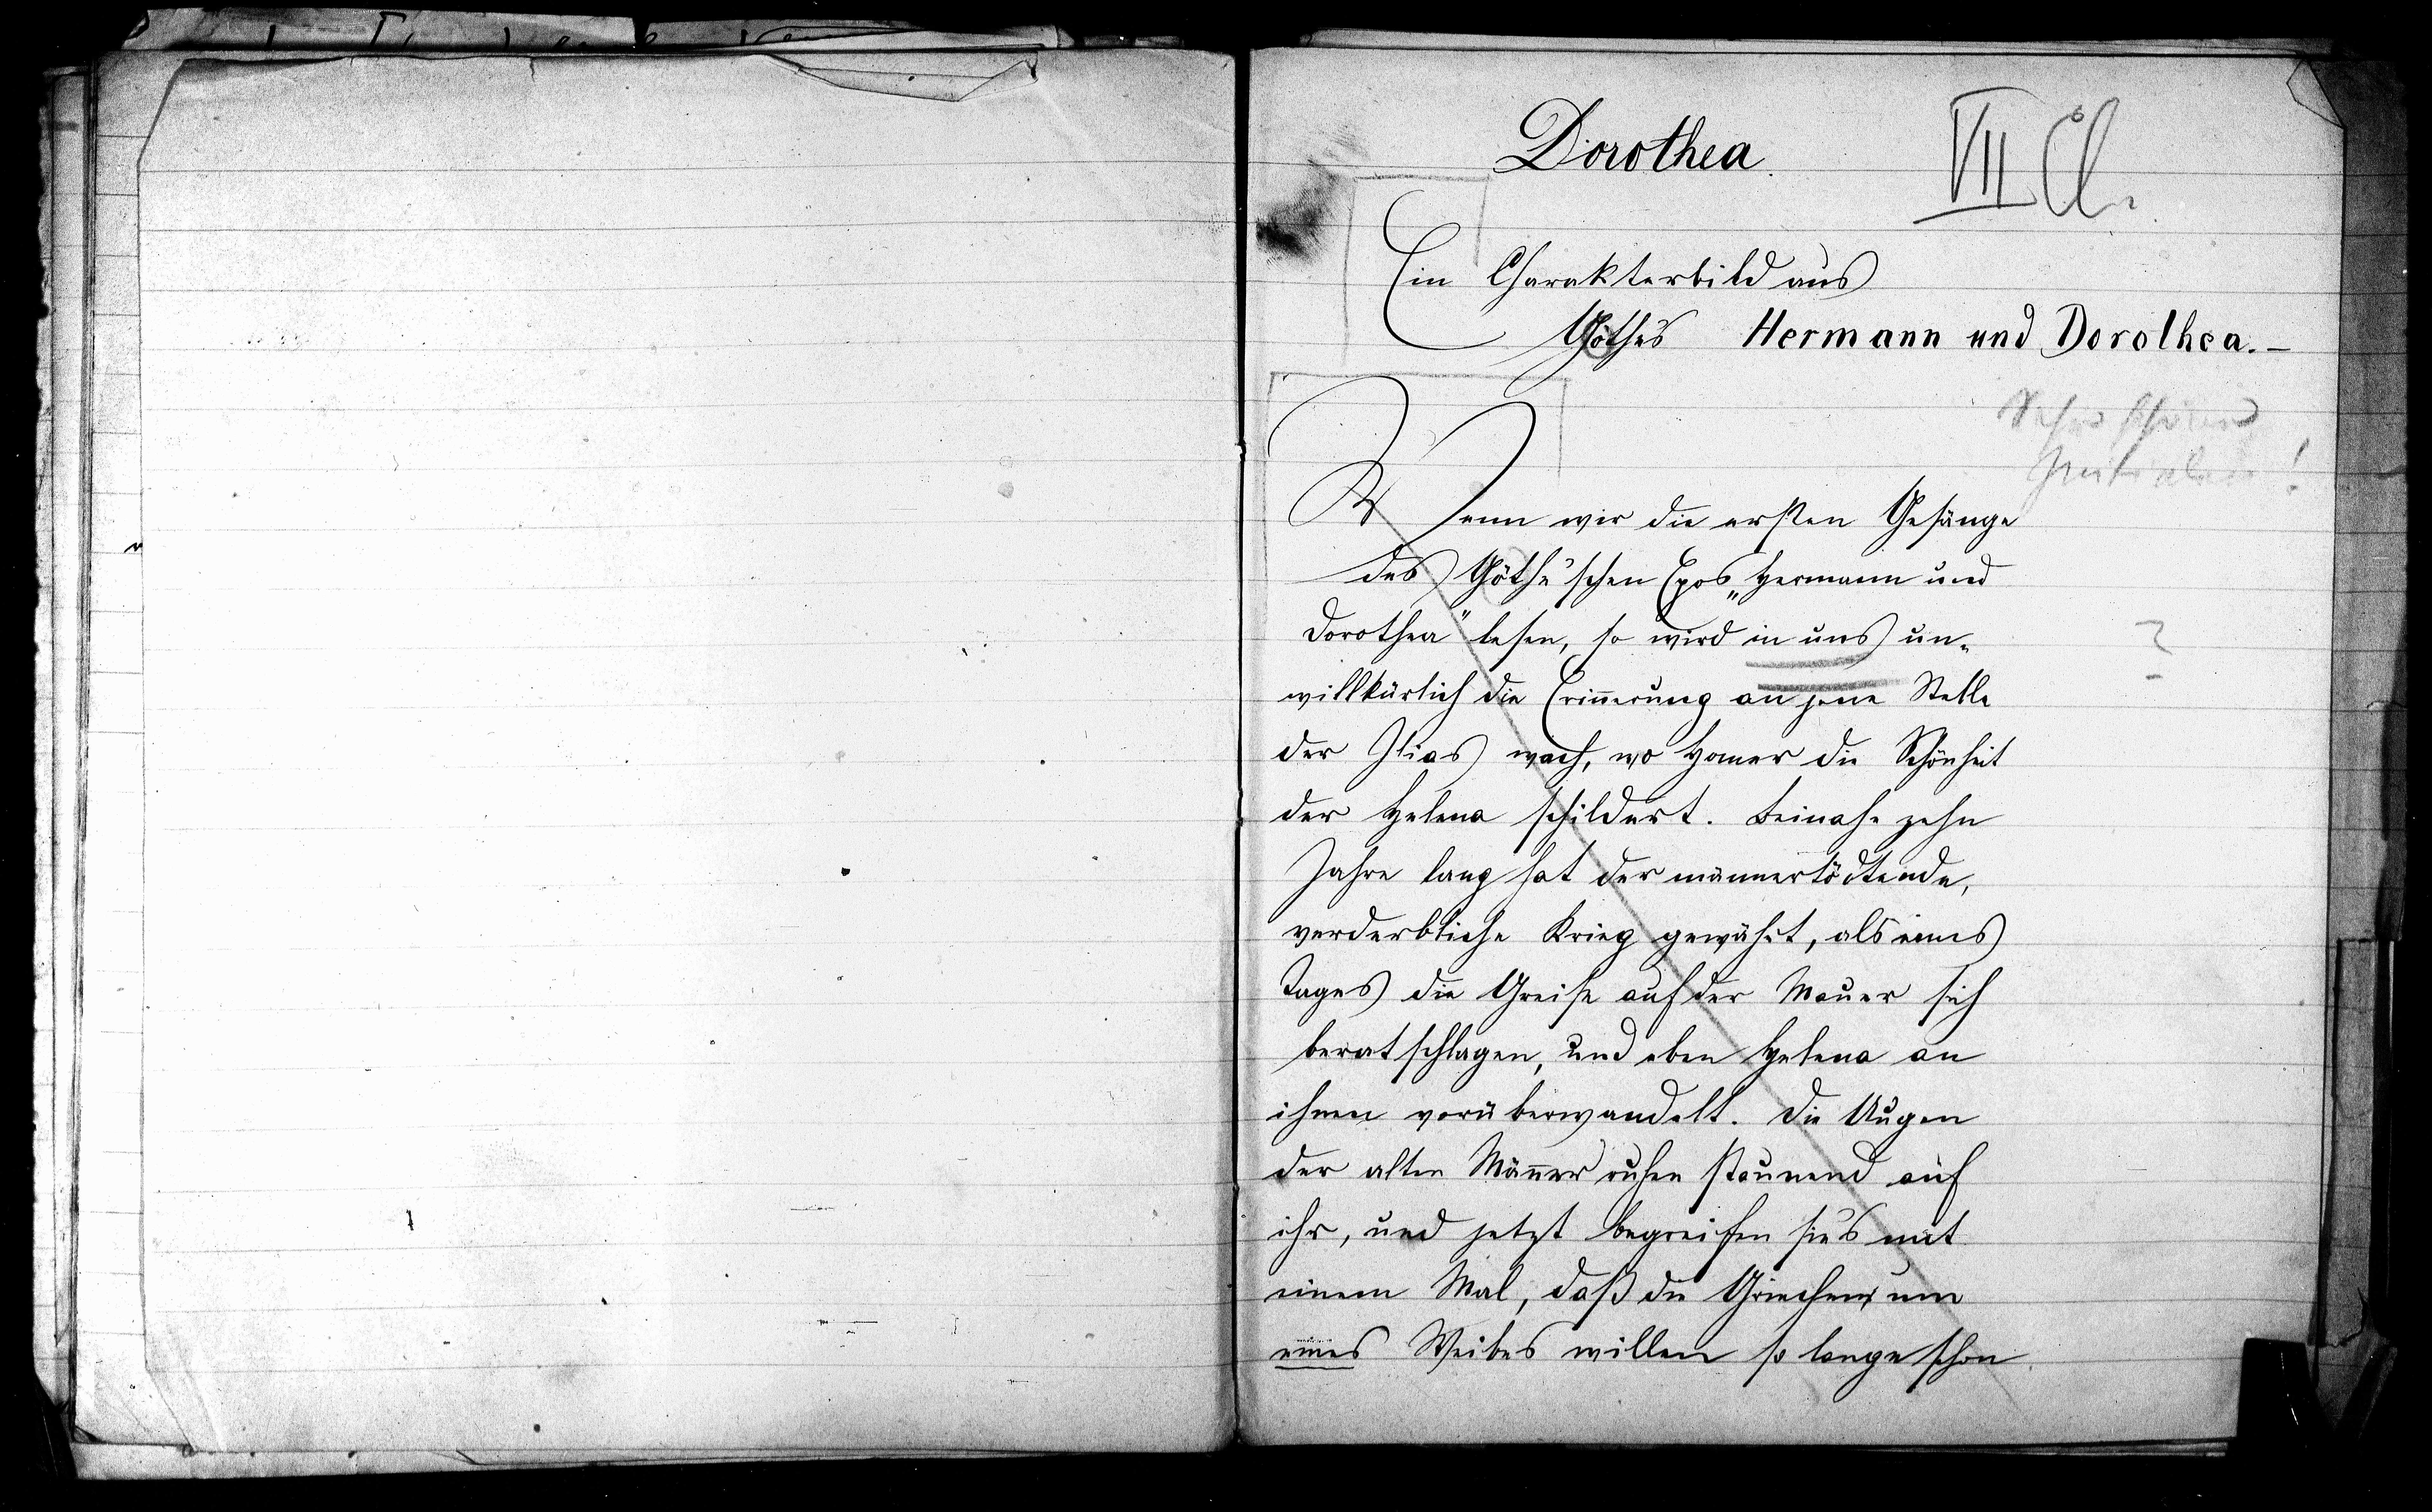 Dorothea.
VII Cl.
Ein Charakterbild aus
Göthe's Hermann und Dorothea. –
Sehr schöne
Initialen!
Wenn wir die ersten Gesänge
des Göthe'schen Epos „Hermann und
Dorothea" lesen, so wird in uns un-
?
willkürlich die Erin̄erung an jene Stelle
der Ilias wach, wo Homer die Schönheit
der Helena schildert. Beinahe zehn
Jahre lang hat der männertödtende,
verderbliche Krieg gewährt, als eines
Tages die Greise auf der Mauer sich
beratschlagen, und eben Helena an
ihnen vorüberwandelt. Die Augen
der alten Män̄er ruhen staunend auf
ihr, und jetzt begreifen sie's mit
einem Mal, daß die Griechen um
eines Weibes willen so lange schon